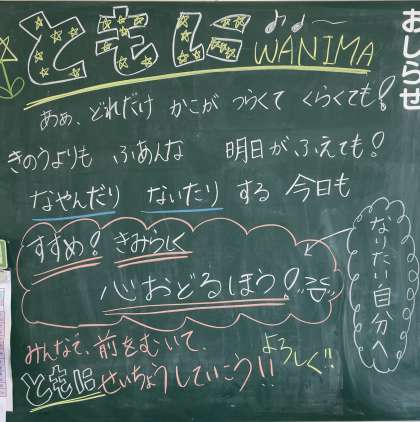 おしらせ
ともに ♪♩〜 WANIMA
ああ、どれだけ かこが つらくて くらくても!
きのうよりも ふあんな 明日が ふえても!
なやんだり ないたり する 今日も
すすめ! きみらしく
心おどるほう!
なりたい自分へ
みんなで、前をむいて、
よろしく!!
ともに せいちょうしていこう!!